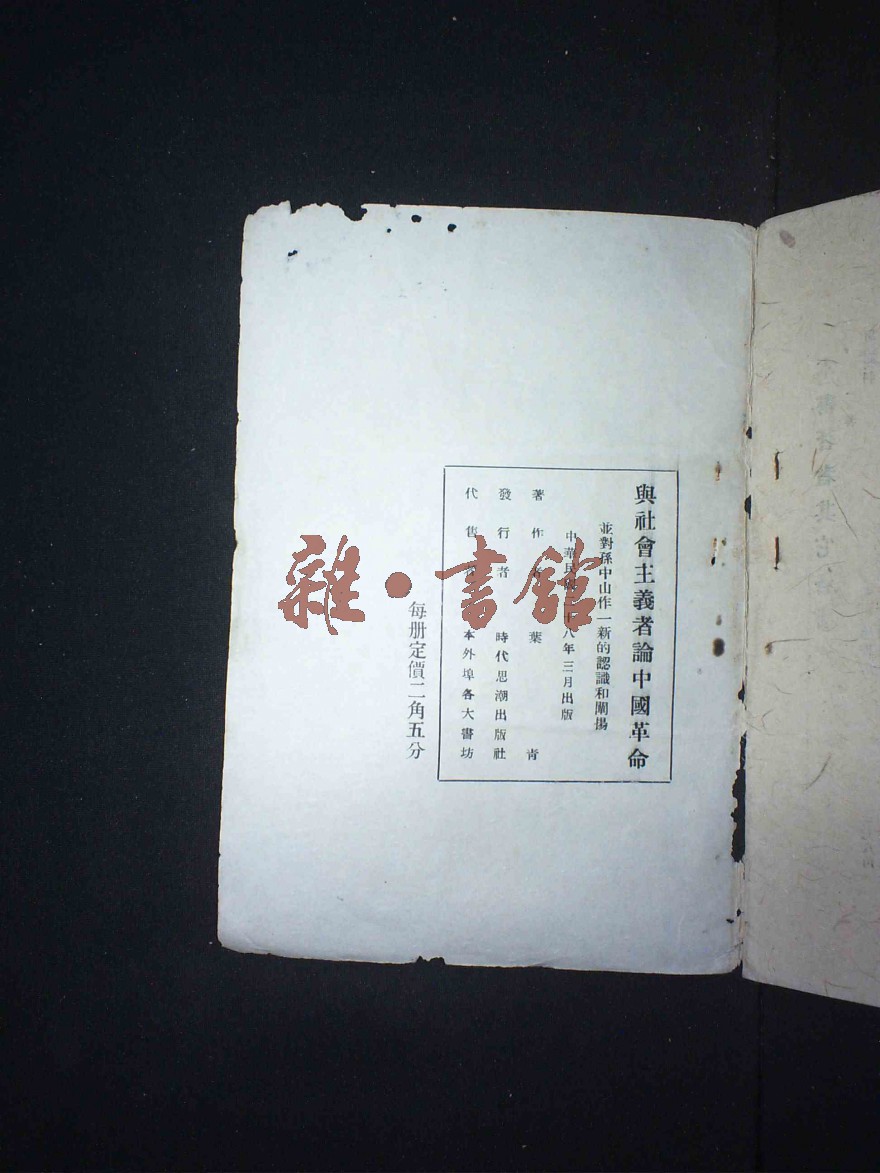 與社會主義者論中國革命
並對孫中山作一新的認識和闡揚
中華民國二十八年三月出版
著作者 葉青
發行者 時代思潮出版社
代售 本外埠各大書坊
每册定價二角五分
雜·書館